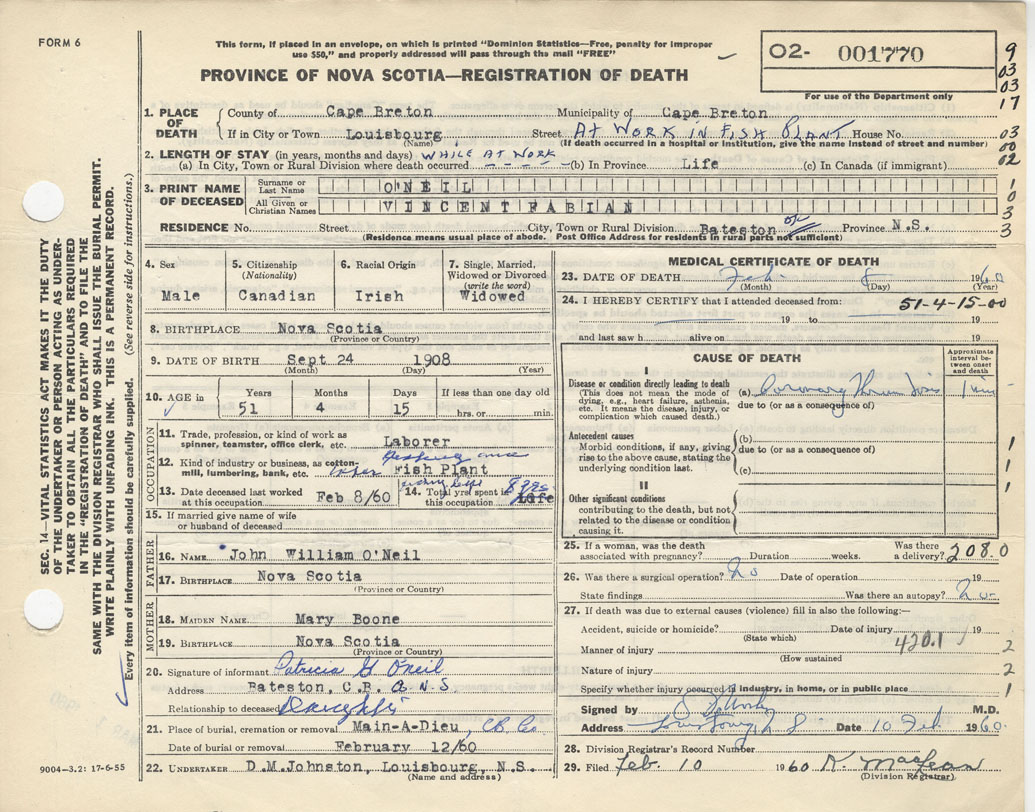 FORM 6
This form, if placed in an envelope, on which is printed "Dominion Statistics—Free, penalty for improper
use $50," and properly addressed will pass through the mail "FREE"
PROVINCE OF NOVA SCOTIA—REGISTRATION OF DEATH
O2- 001770
For use of the Department only
9
03
03
17
03
00
02
1
0
3
3
SEC. 14—VITAL STATISTICS ACT MAKES IT THE DUTY
OF THE UNDERTAKER OR PERSON ACTING AS UNDER-
TAKER TO OBTAIN ALL THE PARTICULARS REQUIRED
IN THE "REGISTRATION OF DEATH" AND TO FILE THE
SAME WITH THE DIVISION REGISTRAR WHO SHALL ISSUE THE BURIAL PERMIT.
WRITE PLAINLY WITH UNFADING INK. THIS IS A PERMANENT RECORD.
Every item of information should be carefully supplied. (See reverse side for instructions.)
1. PLACE OF DEATH
County of Cape Breton Municipality of Cape Breton
If in City or Town Louisbourg Street AT WORK IN FISH PLANT House No.
(Name) (If death occurred in a hospital or institution, give the name instead of street and number)
2. LENGTH OF STAY (in years, months and days) WHILE AT WORK
(a) In City, Town or Rural Division where death occurred (b) In Province Life (c) In Canada (if immigrant)
3. PRINT NAME OF DECEASED
Surname or Last Name O'NEIL
All Given or Christian Names VINCENT FABIAN
RESIDENCE No. Street City, Town or Rural Division Bateston Province N.S.
(Residence means usual place of abode. Post Office Address for residents in rural parts not sufficient)
4. Sex Male
5. Citizenship (Nationality) Canadian
6. Racial Origin Irish
7. Single, Married, Widowed or Divorced (write the word) Widowed
8. BIRTHPLACE Nova Scotia
(Province or Country)
9. DATE OF BIRTH Sept 24 1908
(Month) (Day) (Year)
10. AGE in Years Months Days If less than one day old
51 4 15 hrs. or min.
OCCUPATION
11. Trade, profession, or kind of work as
spinner, teamster, office clerk, etc. Laborer
12. Kind of industry or business, as cotton-
mill, lumbering, bank, etc. Fish Plant
13. Date deceased last worked
at this occupation Feb 8/60
14. Total yrs spent in
this occupation Life
15. If married give name of wife
or husband of deceased
FATHER
16. NAME John William O'Neil
17. BIRTHPLACE Nova Scotia
(Province or Country)
MOTHER
18. MAIDEN NAME Mary Boone
19. BIRTHPLACE Nova Scotia
(Province or Country)
20. Signature of informant Patricia G O'Neil
Address Bateston, C.B. N S
Relationship to deceased Daughter
21. Place of burial, cremation or removal Main-A-Dieu, CB Co
Date of burial or removal February 12/60
22. UNDERTAKER D.M.Johnston, Louisbourg, N.S.
(Name and address)
9004-3.2: 17-6-55
MEDICAL CERTIFICATE OF DEATH
23. DATE OF DEATH Feb 8 1960
(Month) (Day) (Year)
24. I HEREBY CERTIFY that I attended deceased from: 51-4-15-00
19 to 19
and last saw h alive on 19
CAUSE OF DEATH
Approximate interval between onset and death
I
Disease or condition directly leading to death
(This does not mean the mode of dying, e.g., heart failure, asthenia, etc. It means the disease, injury, or complication which caused death.)
(a) Coronary Thrombosis 1 min
due to (or as a consequence of)
Antecedent causes
Morbid conditions, if any, giving rise to the above cause, stating the underlying condition last.
(b)
due to (or as a consequence of)
(c)
II
Other significant conditions
contributing to the death, but not related to the disease or condition causing it.
1
1
1
25. If a woman, was the death
associated with pregnancy? Duration weeks. Was there a delivery? 2080
26. Was there a surgical operation? No Date of operation 19
State findings Was there an autopsy? No
27. If death was due to external causes (violence) fill in also the following:—
Accident, suicide or homicide? Date of injury 19
(State which)
Manner of injury 420.1 2
(How sustained)
Nature of injury 2
Specify whether injury occurred in industry, in home, or in public place 1
Signed by M.D.
Address Louisbourg N S Date 10 Feb 1960
28. Division Registrar's Record Number
29. Filed Feb. 10 1960 K. MacLean
(Division Registrar)